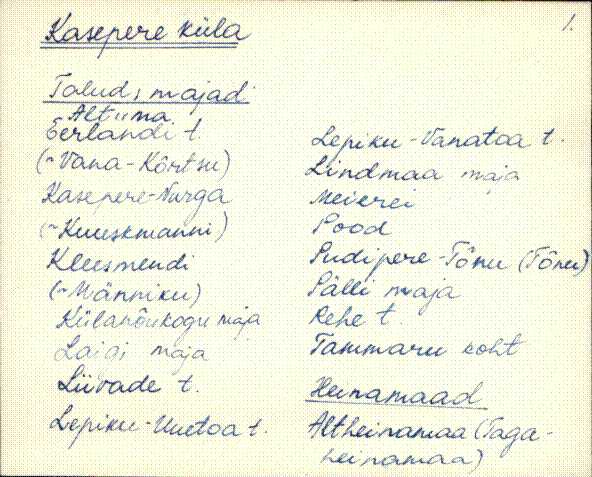 Kasepere küla
1.
Talud, majad
Altuma
Eerlandi t.
(~Vana-Kõrtsu)
Kasepere-Nurga
(~Kuuskmanni)
Kleesmendi
(~Männiku)
Külanõukogu maja
Laigi maja
Liivade t.
Lepiku-Uuetoa t.
Lepiku-Vanatoa t.
Lindmaa maja
Meierei
Pood
Pudipere-Tõnu (Tõnu)
Pälli maja
Rehe t.
Tammaru koht
Heinamaad
Altheinamaa (Taga-
heinamaa)